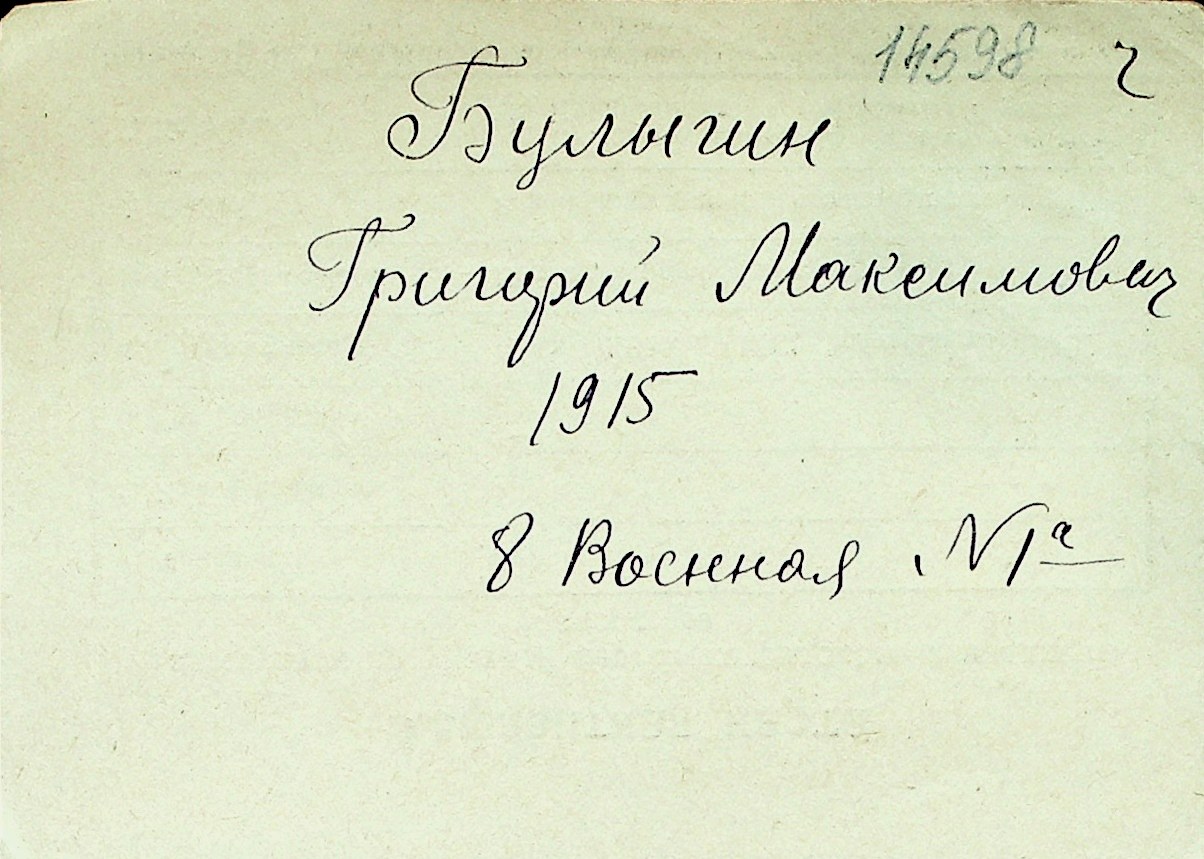 14598 ч
Булыгин
Григорий Максимович
1915
8 Военная, №1а